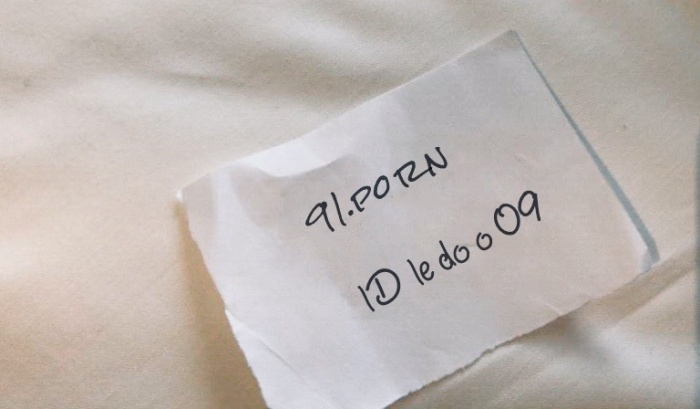 91.PORN
ID ledooo09